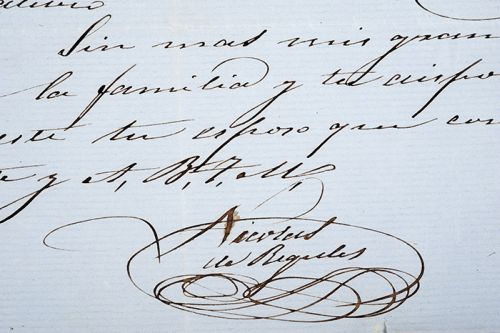 Sin mas mis gran
la familia y tu dispo
este tu esposo que con
y A, B, T, M,
Nicolas
de Regules